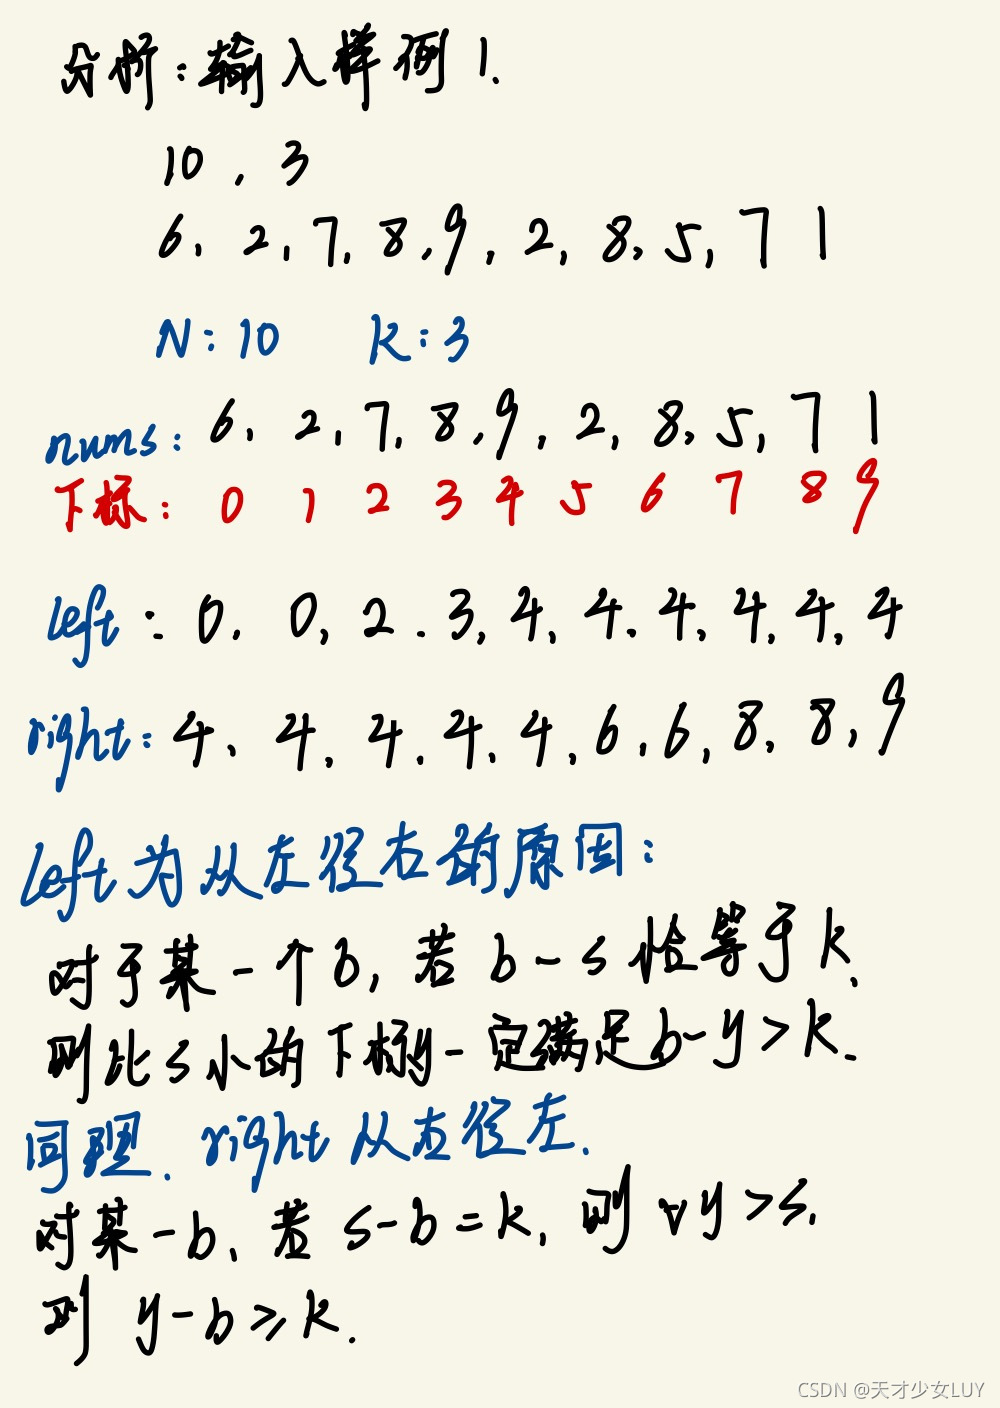 分析：输入样例1.
10，3
6，2，7，8，9，2，8，5，7 1
N：10 K：3
nums：6，2，7，8，9，2，8，5，7 1
下标：0 1 2 3 4 5 6 7 8 9
left：0，0，2．3，4，4．4，4，4，4
right：4、4，4．4，4，6，6，8，8，9
left为从左径右的原因：
对于某一个b，若 b-s 恰等于k．
则比s小的下标y一定满足b-y>k．
同理．right从右径左．
对某一b、若 s-b=k，则 ∀y>s，
则 y-b≥k．
CSDN @天才少女LUY